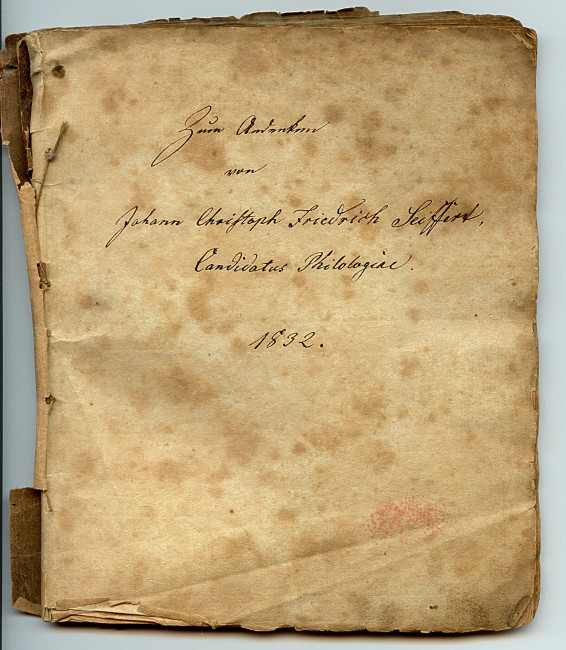 Zum Andenken
von
Johann Christoph Friedrich Seiffert,
Candidatus Philologiae.
1832.